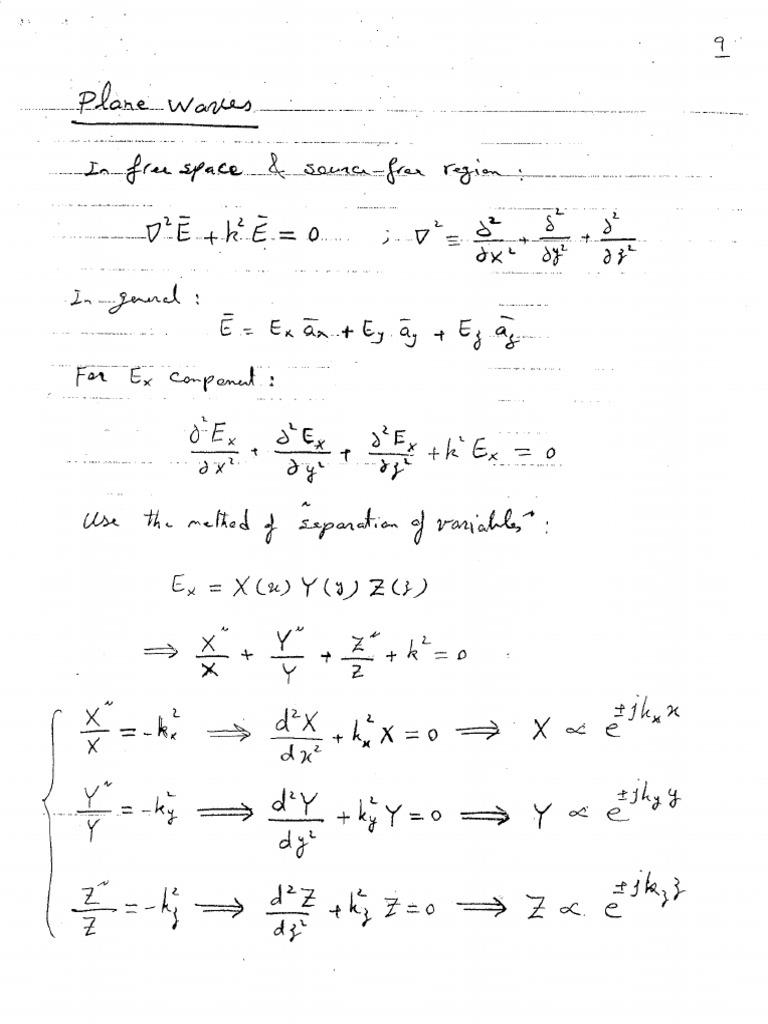 9
Plane Waves
In free space & source-free region:
∇²Ē + k²Ē = 0 ; ∇² = ∂²/∂x² + ∂²/∂y² + ∂²/∂z²
In general:
Ē = Eₓ āₓ + E_y ā_y + E_z ā_z
For Eₓ component:
∂²Eₓ/∂x² + ∂²Eₓ/∂y² + ∂²Eₓ/∂z² + k²Eₓ = 0
Use the method of "separation of variables":
Eₓ = X(x) Y(y) Z(z)
⟹ X″/X + Y″/Y + Z″/Z + k² = 0
X″/X = -kₓ² ⟹ d²X/dx² + kₓ² X = 0 ⟹ X ∝ e^{±jkₓx}
Y″/Y = -k_y² ⟹ d²Y/dy² + k_y² Y = 0 ⟹ Y ∝ e^{±jk_y y}
Z″/Z = -k_z² ⟹ d²Z/dz² + k_z² Z = 0 ⟹ Z ∝ e^{±jk_z z}